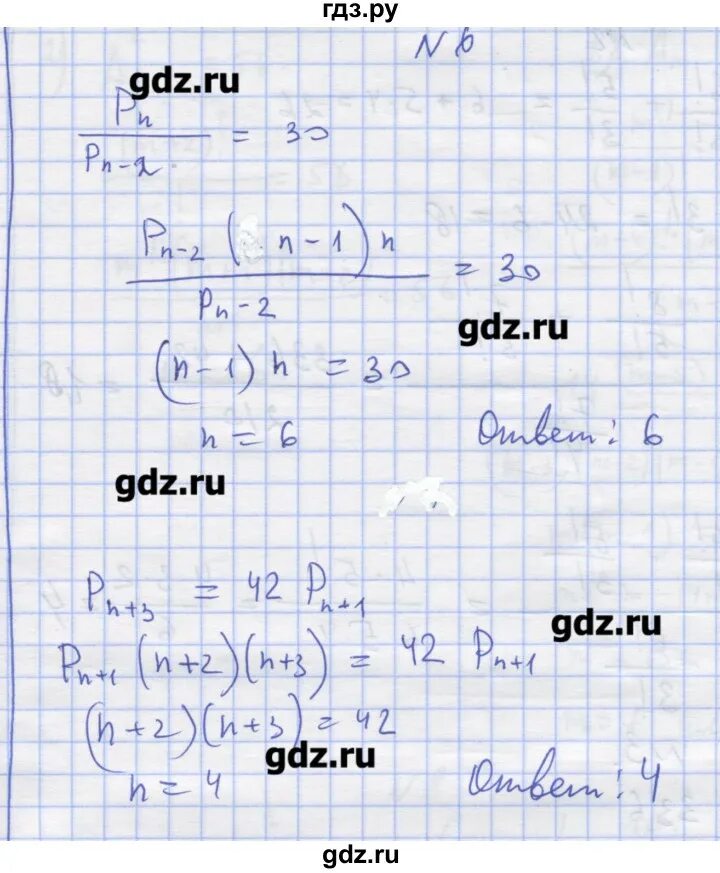 гдз.ру
N 6
gdz.ru
Pₙ / Pₙ₋₂ = 30
Pₙ₋₂ (n-1) n / Pₙ₋₂ = 30
gdz.ru
(n-1) n = 30
n = 6
Ответ: 6
gdz.ru
Pₙ₊₃ = 42 Pₙ₊₁
gdz.ru
Pₙ₊₁ (n+2)(n+3) = 42 Pₙ₊₁
(n+2)(n+3) = 42
gdz.ru
n = 4
Ответ: 4
gdz.ru